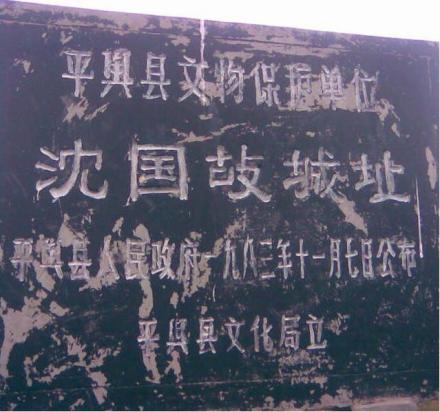 平舆县文物保护单位
沈国故城址
平舆县人民政府一九八三年十一月七日公布
平舆县文化局立